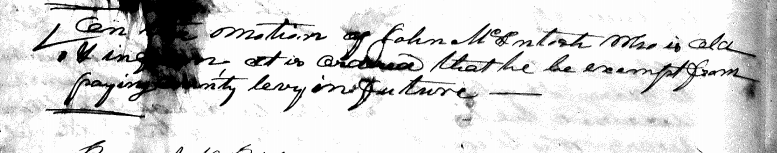 On the motion of John McIntosh who is old
& infirm, it is ordered that he be exempt from
paying county levy in future —